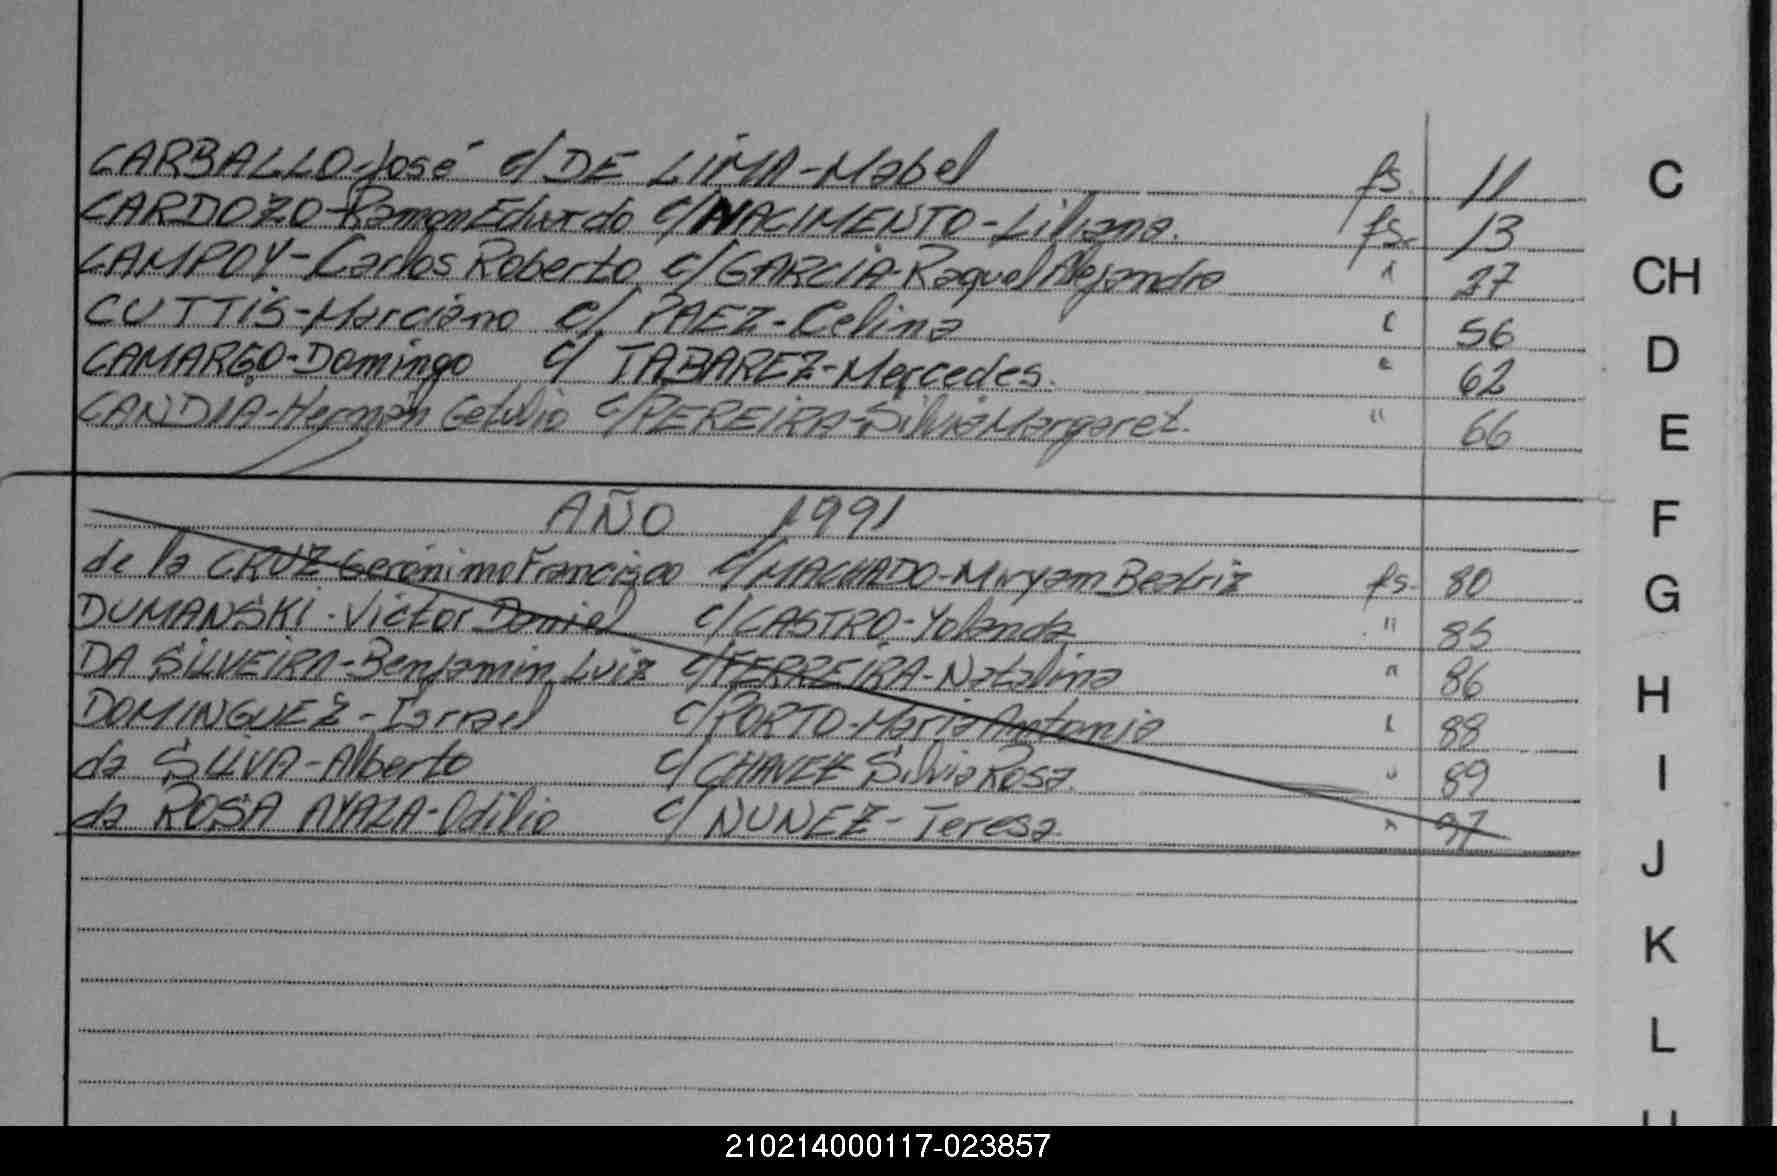 CARBALLO-José c/ DE LIMA-Mabel fs. 11
CARDOZO-Ramon Eduardo c/ NACIMENTO-Liliana. fs. 13
CAMPOY-Carlos Roberto c/ GARCIA-Raquel Alejandra " 27
CUTTIS-Marciano c/ PAEZ-Celina " 56
CAMARGO-Domingo c/ TABAREZ-Mercedes. " 62
CANDIA-Hernán Getulio c/ PEREIRA-Silvia Margaret. " 66
AÑO 1991
de la CRUZ-Gerónimo Francisco c/ MACHADO-Miryam Beatriz fs. 80
DUMANSKI-Victor Daniel c/ CASTRO-Yolanda " 85
DA SILVEIRA-Benjamin Luiz c/ FERREIRA-Natalina " 86
DOMINGUEZ-Israel c/ PORTO-Maria Antonia " 88
da SILVA-Alberto c/ CHAVEZ Silvia Rosa. " 89
da ROSA AYALA-Odilio c/ NUNEZ-Teresa " 97
C
CH
D
E
F
G
H
I
J
K
L
210214000117-023857